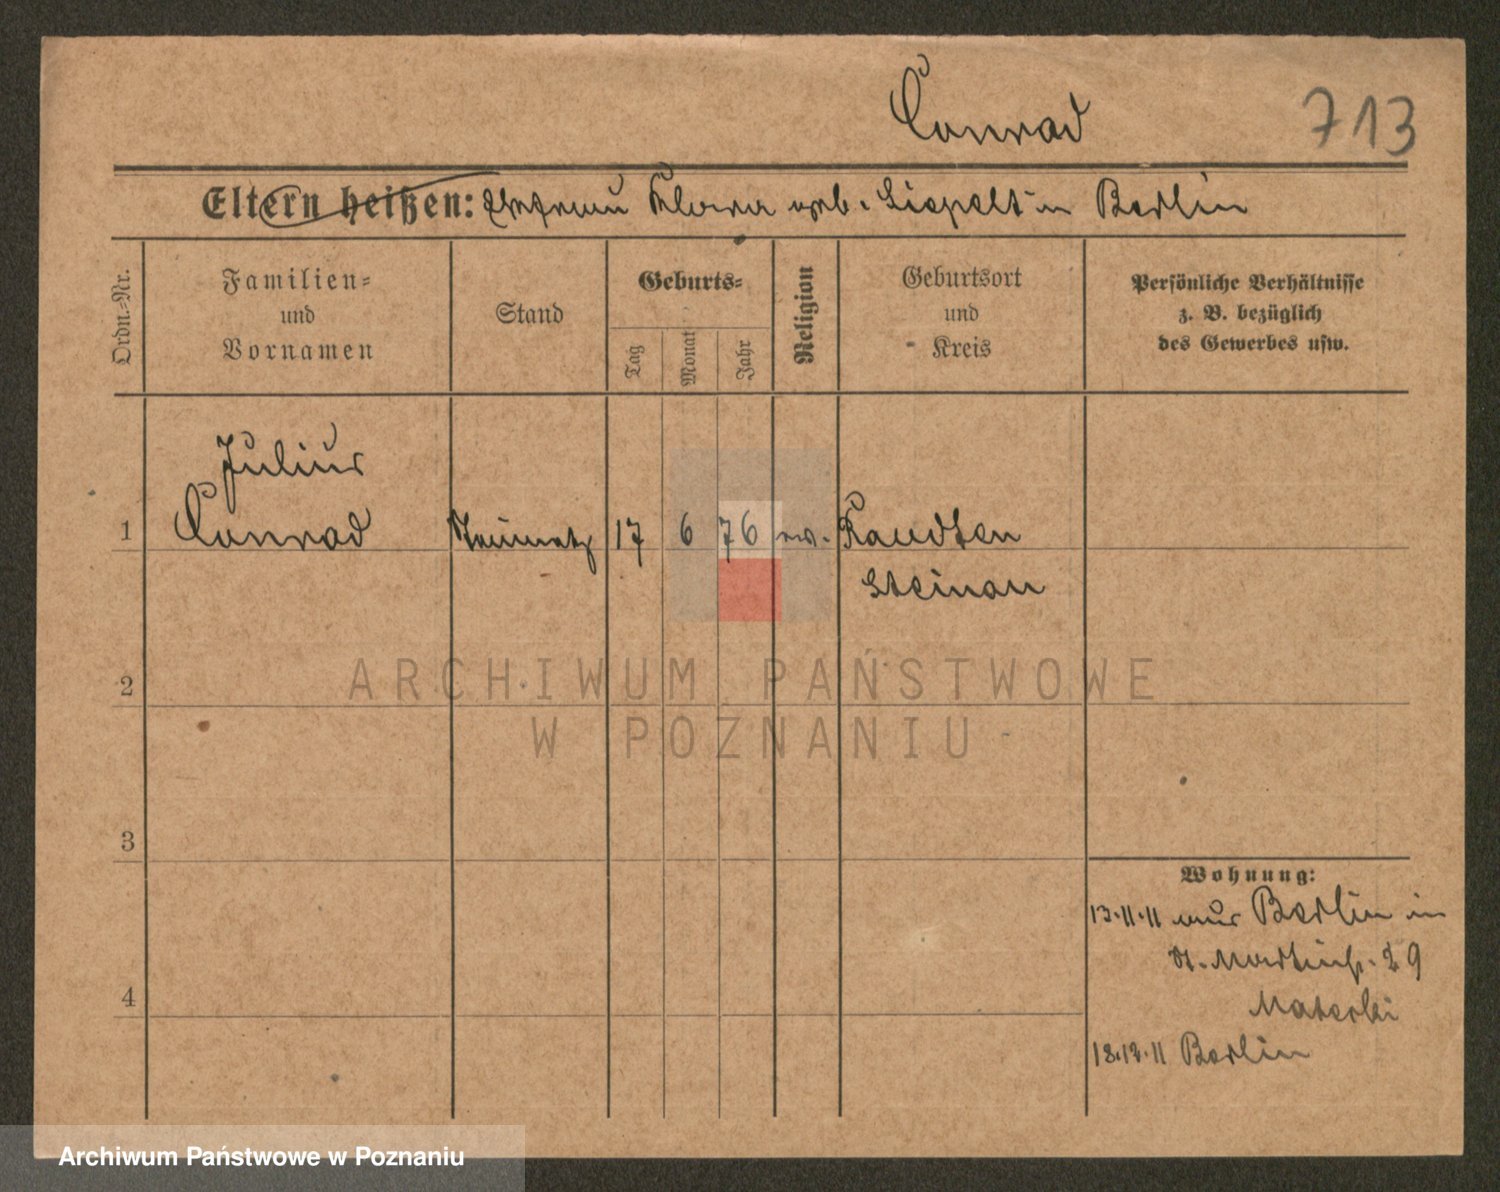 Conrad
713
Eltern heißen: Ehefrau Klara geb. Liepelt in Berlin
Ordn.-Nr.
Familien-
und
Vornamen
Stand
Geburts-
Tag
Monat
Jahr
Religion
Geburtsort
und
Kreis
Persönliche Verhältnisse
z. B. bezüglich
des Gewerbes usw.
Julius
1 Conrad Steinmetz 17 6 76 ev. Raudten
Steinau
2
3
4
Wohnung:
13.11.11 aus Berlin in
St. Martinstr. 29
18.12.11 Berlin
ARCHIWUM PAŃSTWOWE
W POZNANIU
Archiwum Państwowe w Poznaniu